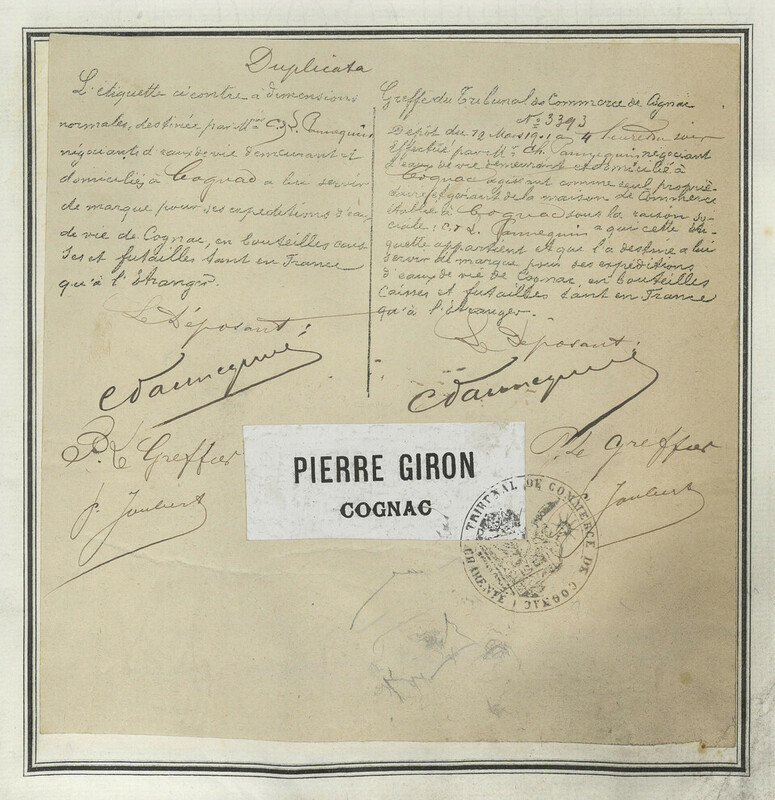 Duplicata
L'étiquette ci contre à dimensions
normales, destinée par Mrs C. & L. Pannequin
négociants d'eaux de vie demeurant et
domiciliés à Cognac a lui servir
de marque pour ses expéditions d'eaux
de vie de Cognac, en bouteilles cais
ses et futailles tant en France
qu'à l'Étranger.
Le Déposant:
P. Le Greffier
P. Joubert
Greffe du Tribunal de Commerce de Cognac
No 3393
Dépôt du 12 Mars 1901 à 4 heures du soir
effectué par Mr Ch. Pannequin négociant
d'eaux de vie demeurant et domicilié à
Cognac agissant comme seul proprié-
taire et gérant de la maison de Commerce
établie à Cognac sous la raison so-
ciale: C. & L. Pannequin à qui cette éti-
quette appartient et que l'a destine a lui
servir de marque pour ses expéditions
d'eaux de vie de Cognac, en bouteilles
caisses et futailles tant en France
qu'à l'Étranger.
Le Déposant:
P. Le Greffier
Joubert
PIERRE GIRON
COGNAC
TRIBUNAL DE COMMERCE DE COGNAC
CHARENTE